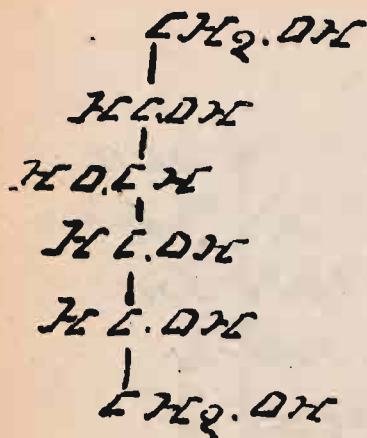 CH2.OH
HC.OH
HO.CH
HC.OH
HC.OH
CH2.OH